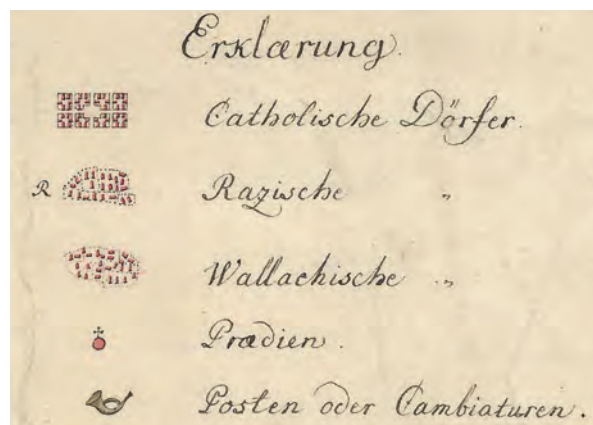 Erklærung.
Catholische Dörfer.
R Razische „
Wallachische „
Prædien.
Posten oder Cambiaturen.